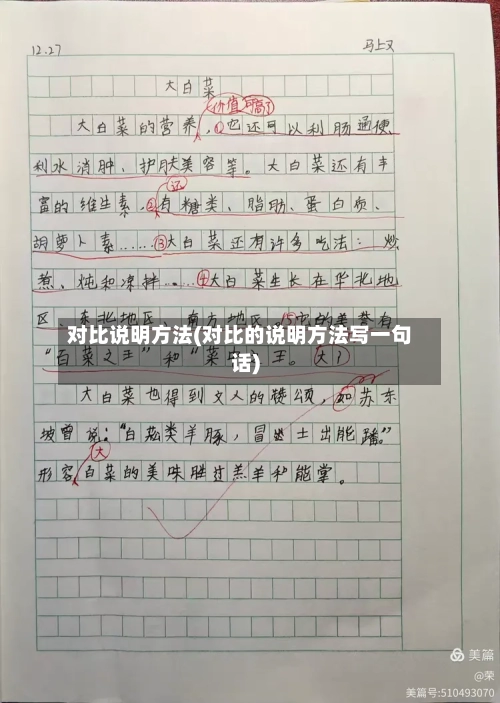 12.27
马上又
大白菜
价值可高了
大白菜的营养,①也还可以利肠通便
利水消肿、护肤美容等。大白菜还有丰
还
富的维生素,②有糖类、脂肪、蛋白质、
胡萝卜素……③大白菜还有许多吃法:炒
煮、炖和凉拌……④大白菜生长在华北地
区、东北地区、南方地区,⑤它的美誉有
对比说明方法(对比的说明方法写一句
话)
“百菜之王”和“菜中之王。大了
大白菜也得到文人的赞颂,如苏东
坡曾说:“白菘类羊豚,冒土出能蹯。”
大
形容白菜的美味胜过羔羊和能掌。
美篇
@荣
美篇号:510493070